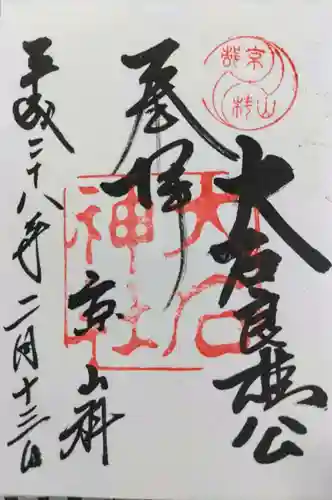 大石良雄公
奉拝
京
山科
平成二十八年二月十三日
大石
神社
京都
山科